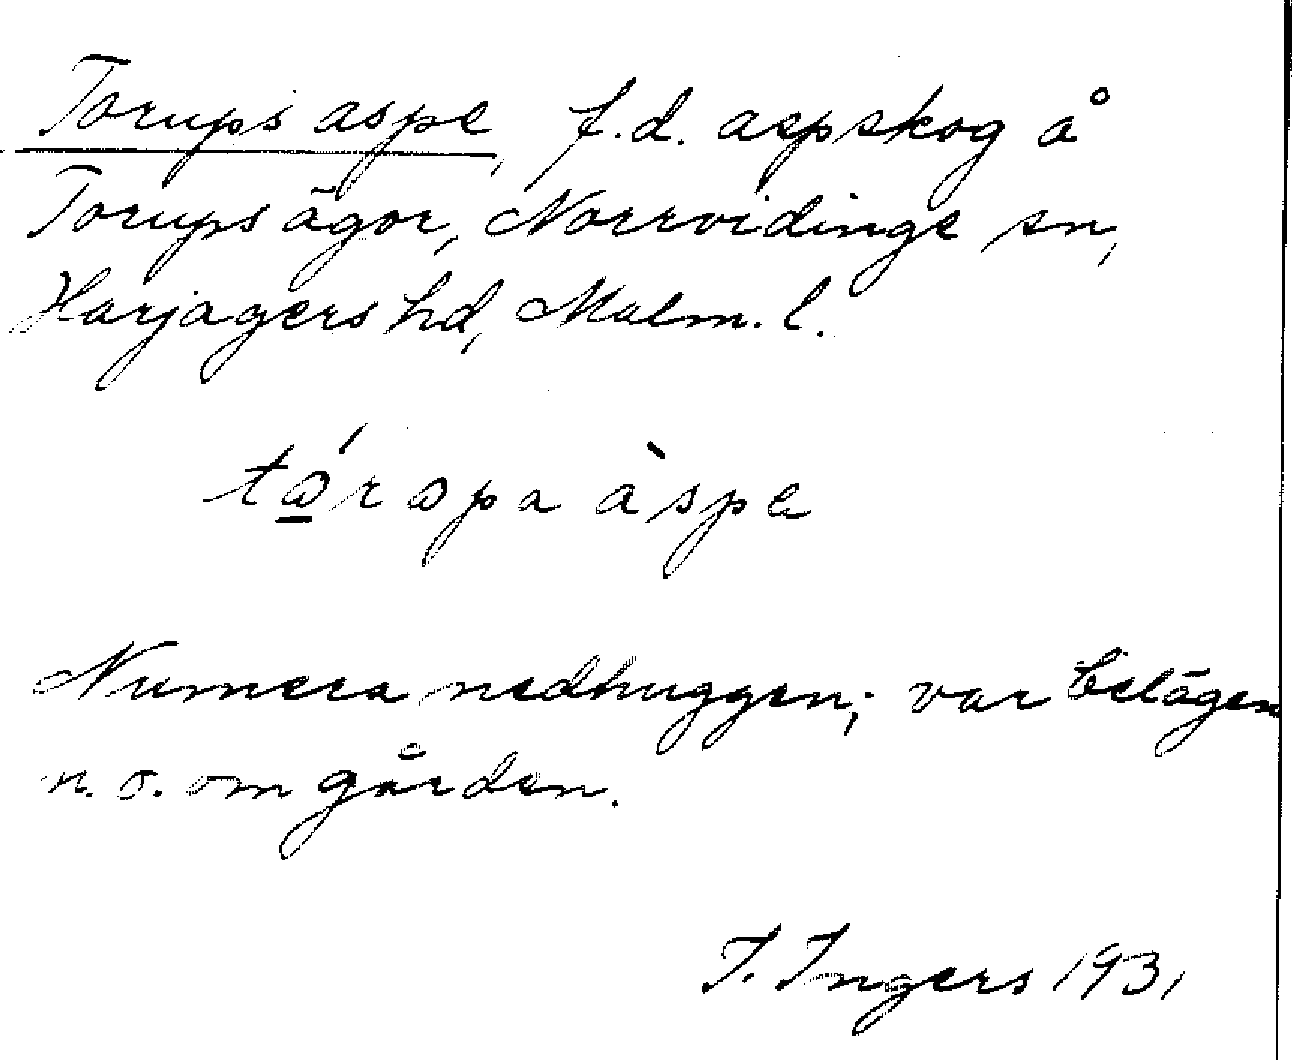 Torups aspe, f.d. aspskog å
Torups ägor, Norrvidinge sn,
Harjagers hd, Malm. l.
tώ̲rωpa àspe
Numera nedhuggen; var belägen
n.ö. om gården.
I. Ingers 1931